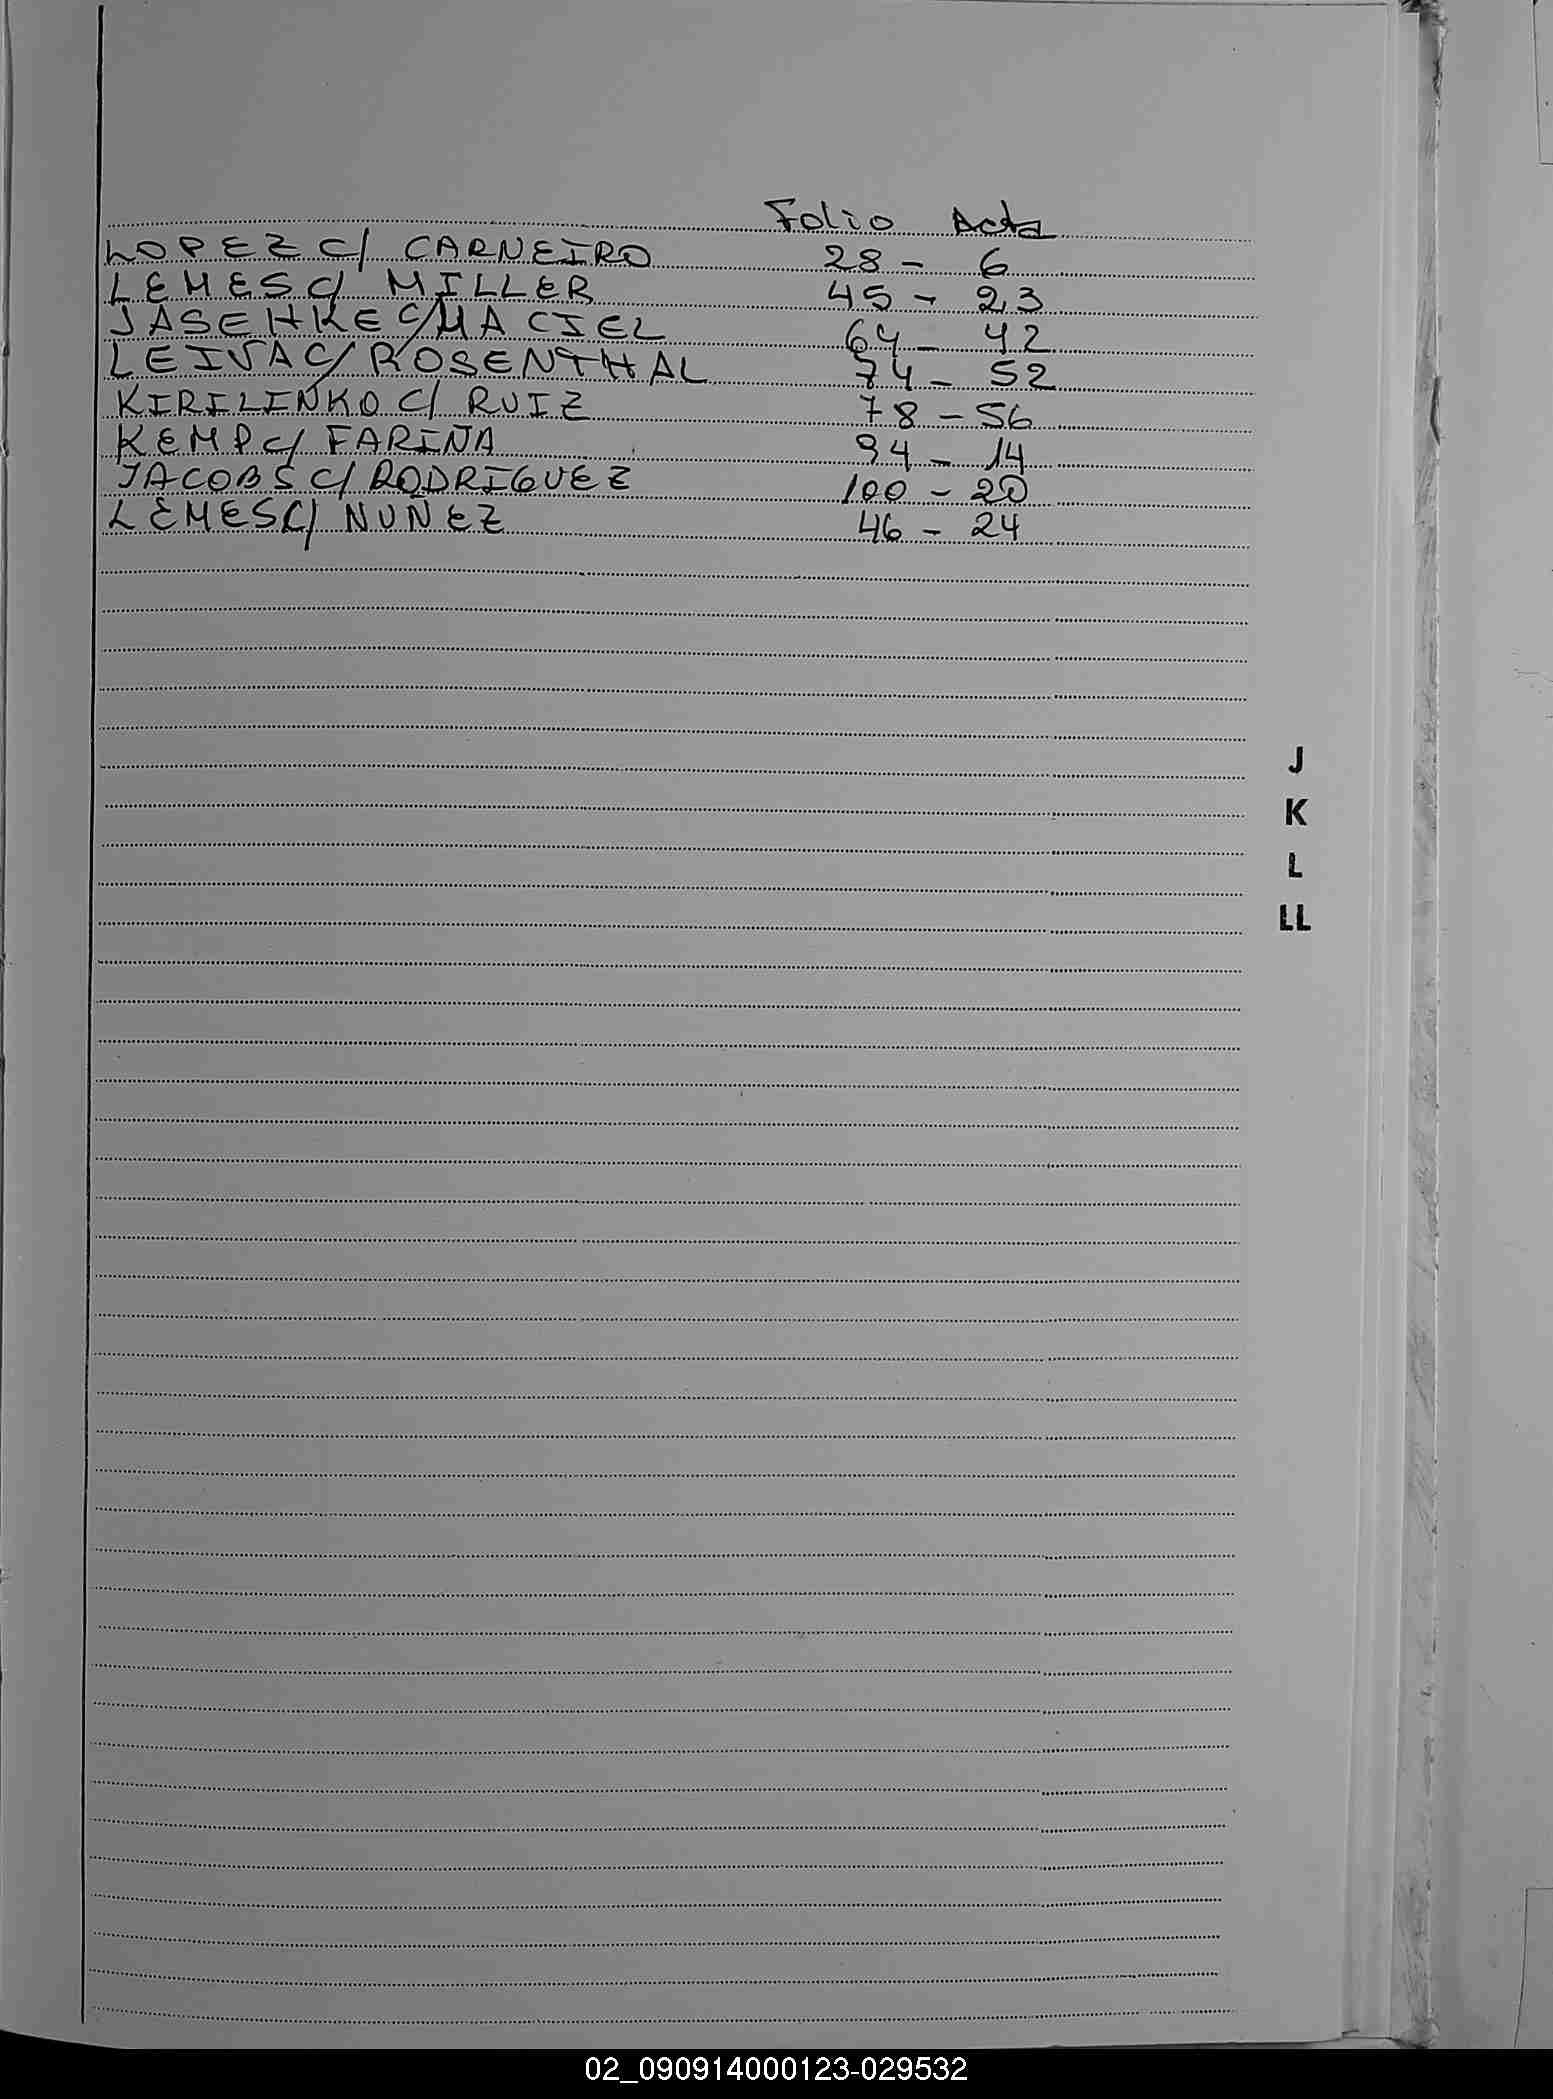 Folio Acta
LOPEZ C/ CARNEIRO 28 - 6
LEMES C/ MILLER 45 - 23
JASEHKE C/ MACIEL 64 - 42
LEIVA C/ ROSENTHAL 74 - 52
KIRILINKO C/ RUIZ 78 - 56
KEMP C/ FARIÑA 94 - 14
JACOBS C/ RODRIGUEZ 100 - 20
LEMES C/ NUÑEZ 46 - 24
J
K
L
LL
02_090914000123-029532